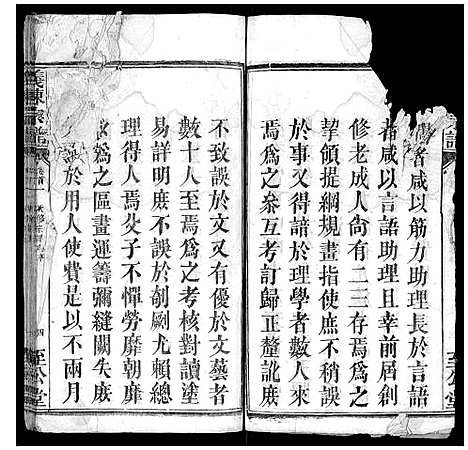 者咸以筋力助理長於言語
者咸以言語助理且幸前屆創
修老成人尚有二三存焉爲之
挈領提綱規畫指使庶不致誤
於事又得諳於理學者數人來
焉爲之叅互考訂歸正釐訛庶
不致誤於文又有優於文藝者
數十人至焉爲之考核對讀塗
易詳明庶不誤於剞劂尤賴總
理得人焉父子不憚勞靡朝靡
夕爲之區畫運籌彌縫闕失庶
於用人使費是以不兩月
義陳宗譜
卷首
四
至公堂
譜
至公堂